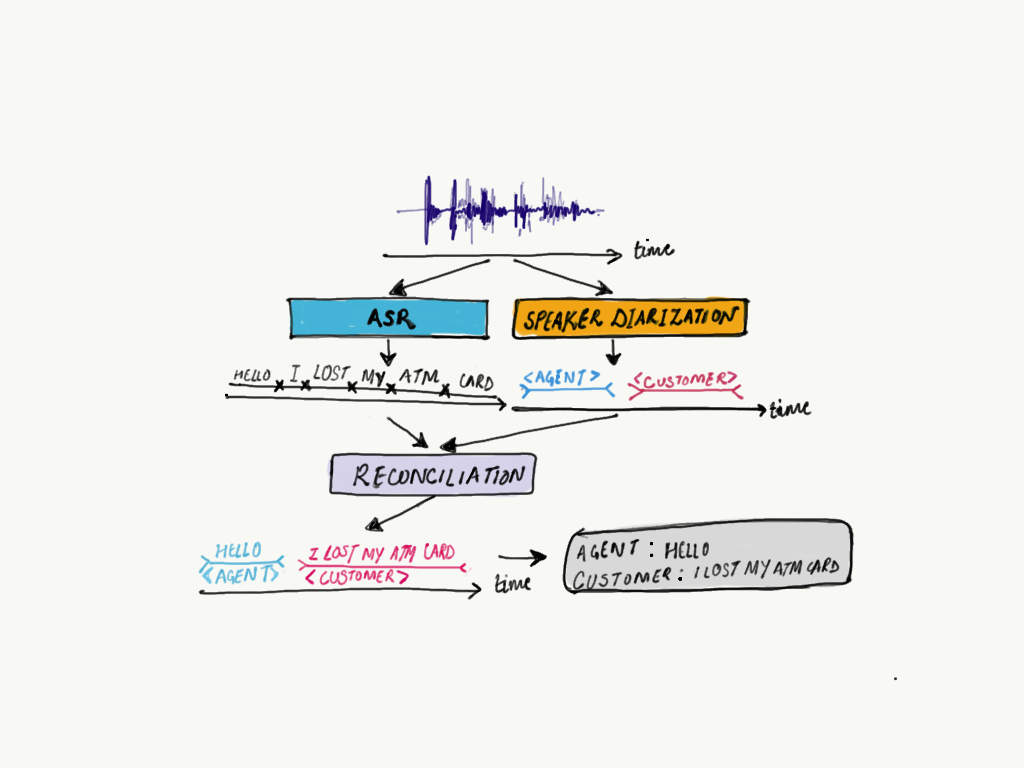 time
ASR
SPEAKER DIARIZATION
HELLO I LOST MY ATM CARD
<AGENT> <CUSTOMER>
time
RECONCILIATION
HELLO I LOST MY ATM CARD
<AGENT> <CUSTOMER>
time
AGENT : HELLO
CUSTOMER : I LOST MY ATM CARD